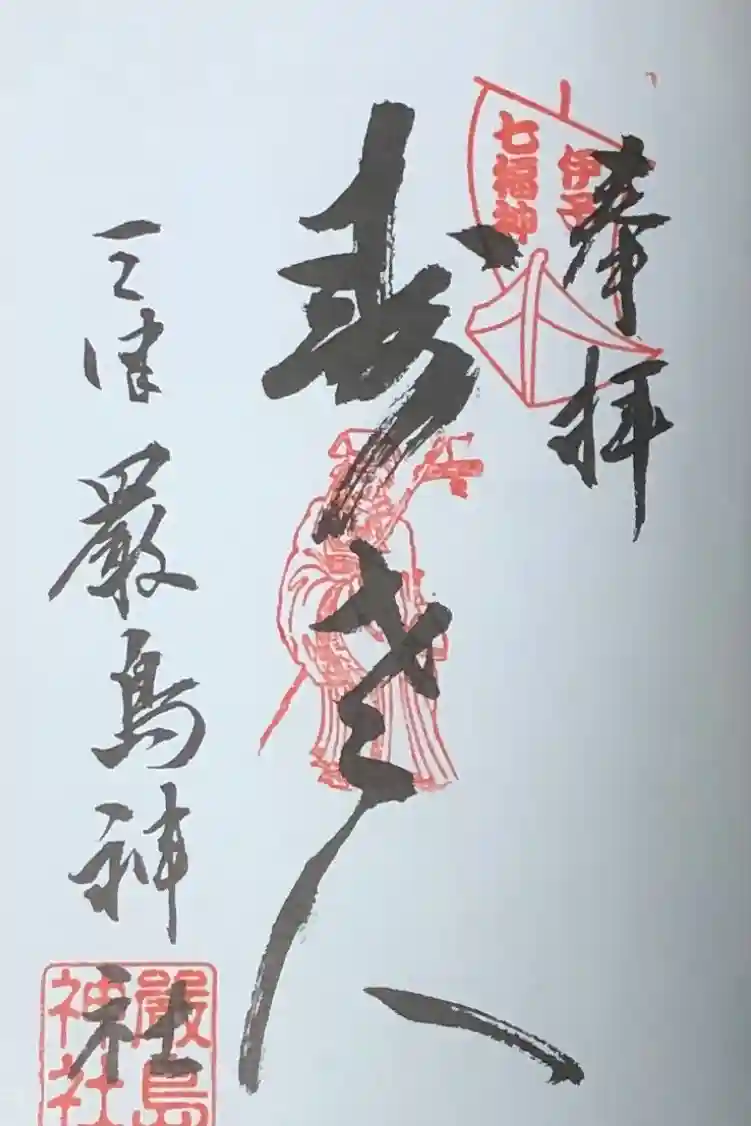 奉拝
伊予
七福神
寿老人
三津嚴島神社
嚴島
神社